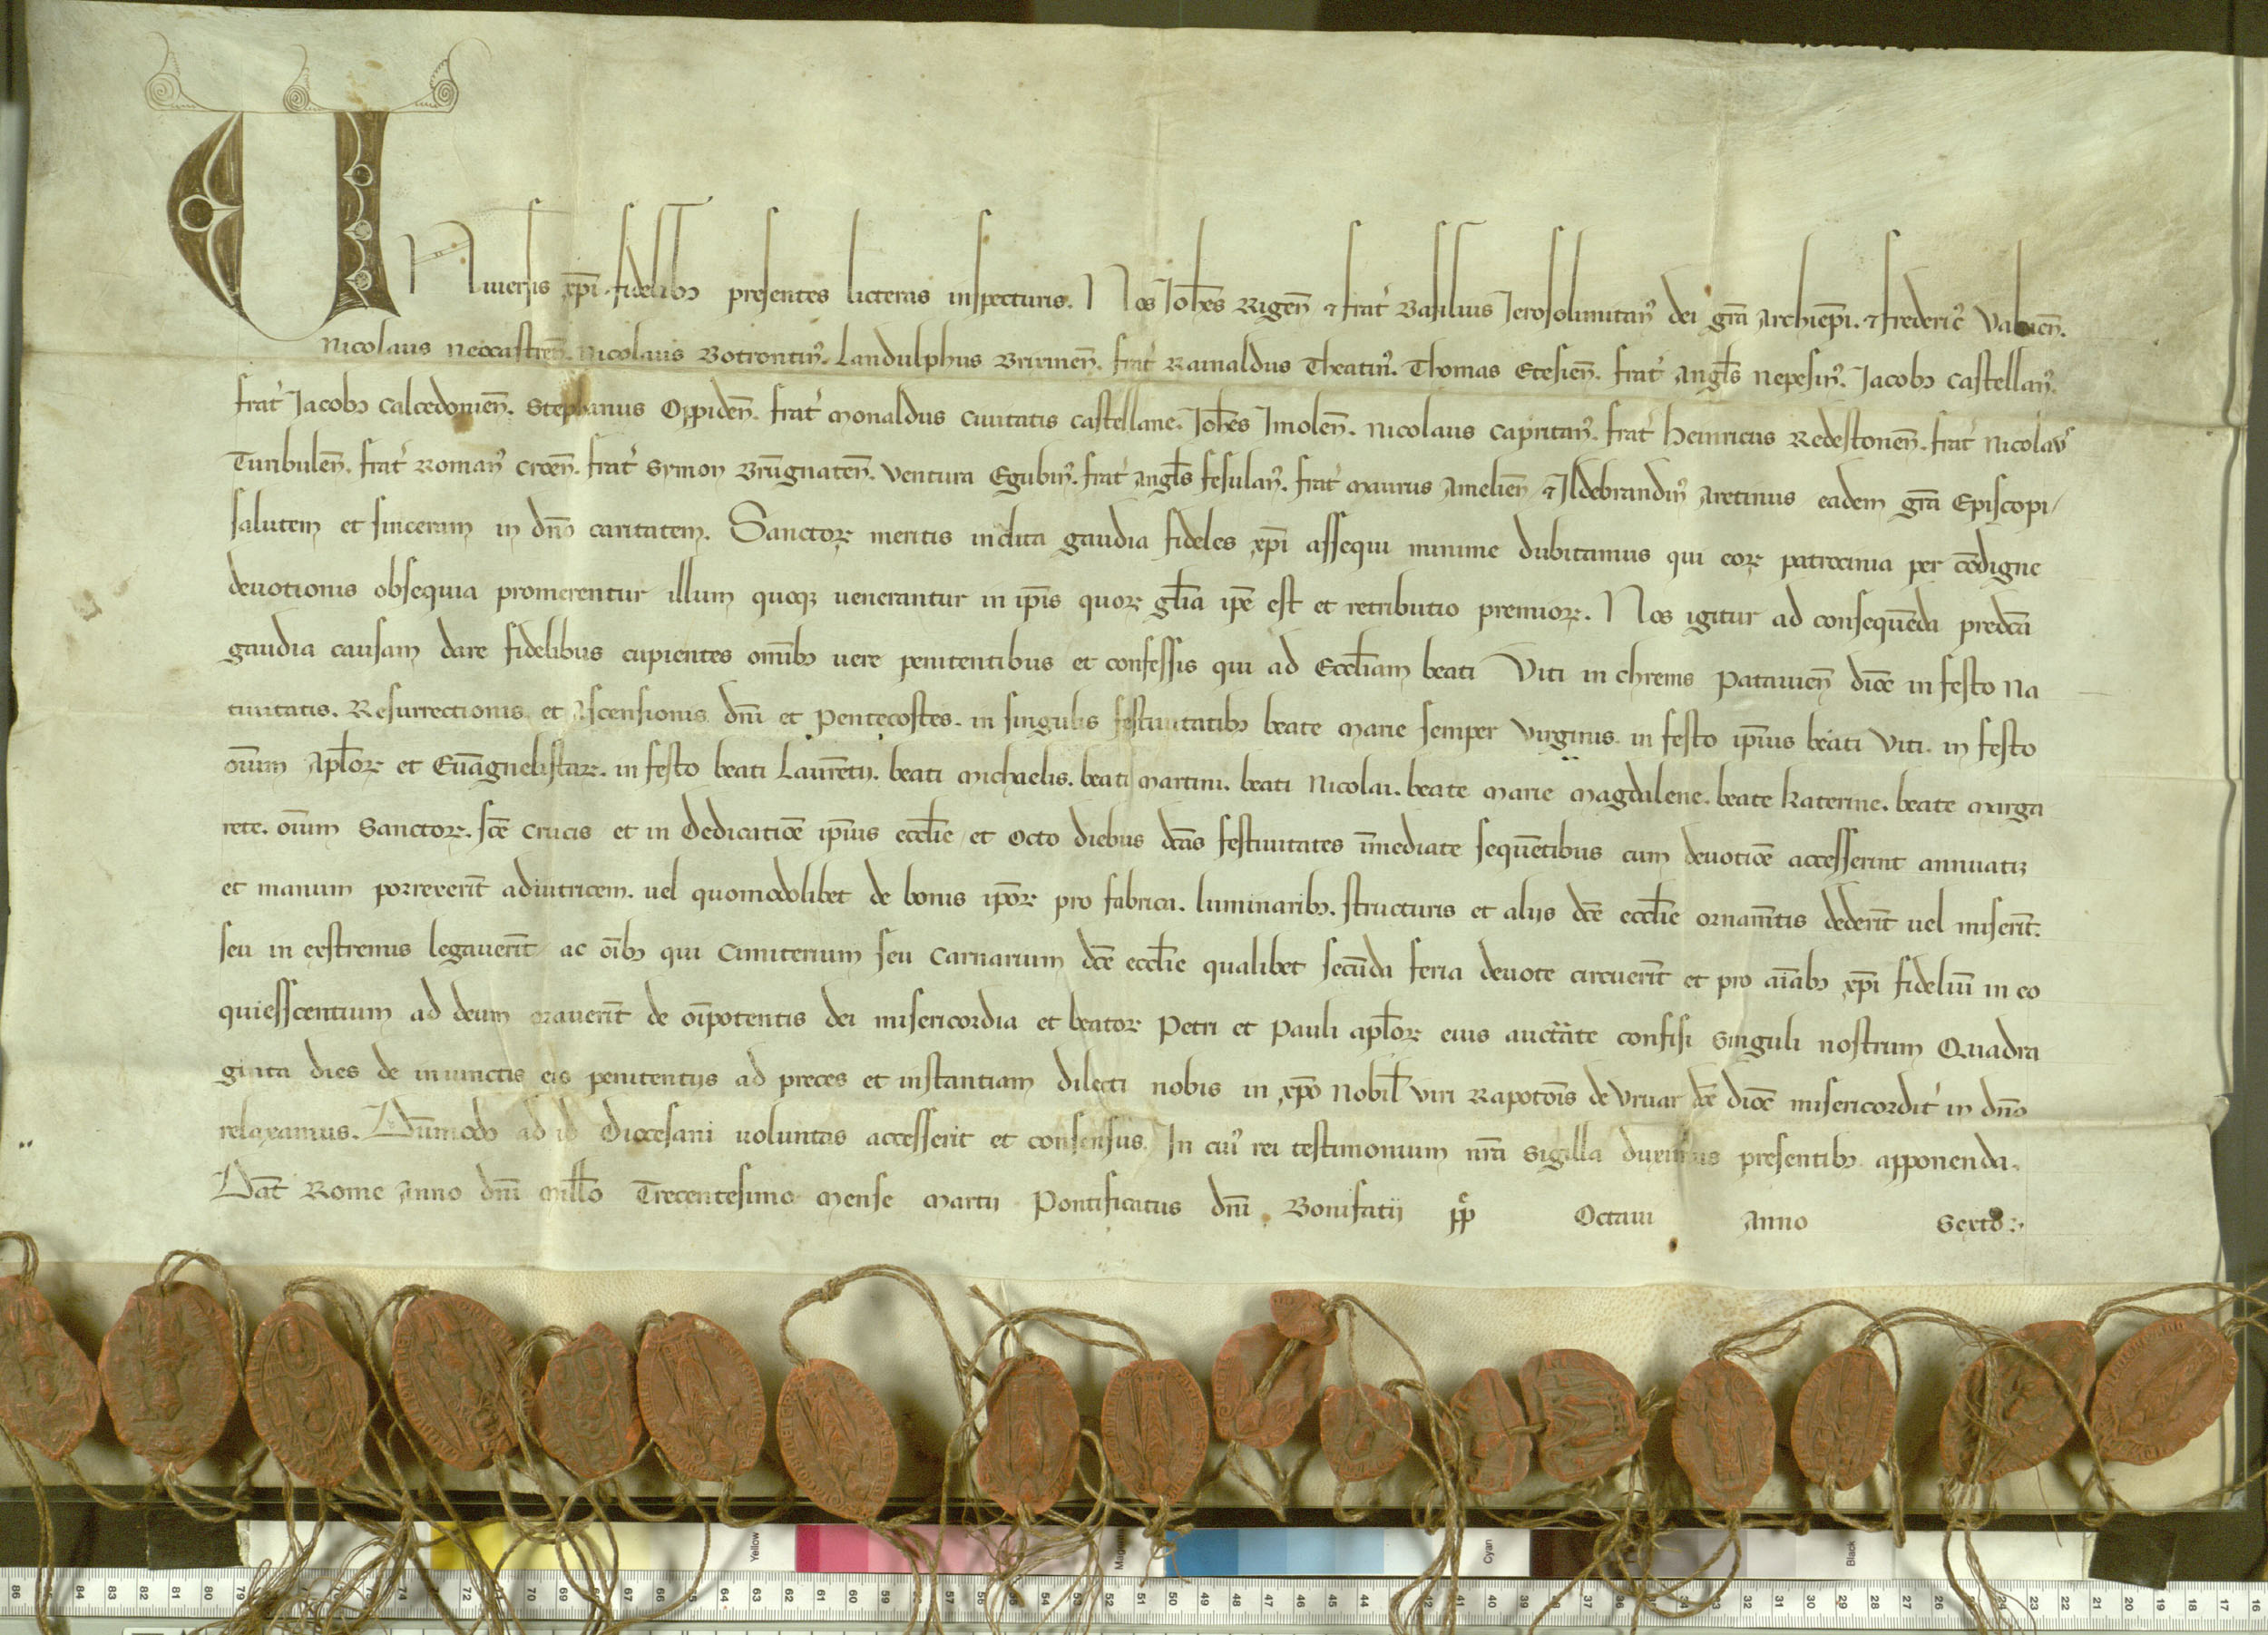 UNiuersis xp̄i fidelibꝰ presentes licteras inspecturis. Nos Ioh̄es Rigen̄ ⁊ frat̄ Basilius Ierosolimitan̄ dei gr̄a Archiep̄i. ⁊ frederic̄ Valuien̄.
Nicolaus Neocastren̄. Nicolaus Botrontin̄. Landulphus Brixinen̄. frat̄ Rainaldus Theatin̄. Thomas Ecesien̄. frat̄ Angl̄s Nepesin̄. Jacobꝰ Castellan̄.
frat̄ Jacobꝰ Calcedonien̄. Stephanus Oppiden̄. frat̄ Monaldus Ciuitatis Castellane. Ioh̄es Imolen̄. Nicolaus Capritan̄. frat̄ Heinricus Redestonen̄. frat̄ Nicolaꝰ
Turibulen̄. frat̄ Roman̄ Croen̄. frat̄ Symon Brūgnaten̄. Ventura Egubin̄. frat̄ Angl̄s fesulan̄. frat̄ Maurus Amelien̄ ⁊ Ildebrandin̄ Aretinus eadem gr̄a Episcopi/
salutem et sinceram in dn̄o caritatem. Sanctoꝝ meritis inclita gaudia fideles xp̄i assequi minime dubitamus qui eoꝝ patrocinia per cōdigne
deuotionis obsequia promerentur illum quoqꝫ uenerantur in ip̄is quoꝝ gl̄ia ip̄e est et retributio premioꝝ. Nos igitur ad consequēda predc̄a
gaudia causam dare fidelibus cupientes om̄ibꝰ uere penitentibus et confessis qui ad Eccl̄iam beati Viti in chrems Patauien̄ dioc̄ in festo Na
tiuitatis. Resurrectionis et Ascensionis dn̄i et Pentecostes. in singulis festiuitatibꝰ beate Marie semper Virginis. in festo ip̄ius beati Viti. in festo
oīum Apl̄oꝝ et Euāgnelistaꝝ. in festo beati Laurētij. beati Michaelis. beati Martini. beati Nicolai. beate Marie Magdalene. beate Katerine. beate Marga
rete. oīum Sanctoꝝ. sc̄e Crucis et in Dedicatiōe ip̄ius eccl̄ie et Octo diebus dc̄as festiuitates īmediate sequētibus cum deuotiōe accesserint annuatiꝫ
et manum porrexerīt adiutricem. uel quomodolibet de bonis ip̄oꝝ pro fabrica. luminaribꝰ. structuris et alijs dc̄e eccl̄ie ornam̄tis dederīt uel miserīt.
seu in exstremis legauerīt/ ac oībꝰ qui Cimiterium seu Carnarium dc̄e eccl̄ie qualibet secūda feria deuote circuerīt et pro aīabꝰ xp̄i fideliū in eo
quiesscentium ad deum orauerīt de oīpotentis dei misericordia et beatoꝝ Petri et Pauli apl̄oꝝ eius auct̄ate confisi singuli nostrum Quadra
ginta dies de iniunctis eis penitentijs ad preces et instantiam dilecti nobis in xp̄o Nobil̄ Viri Rapotōis de Vruar dc̄e dioc̄ misericordit̄ in dn̄o
relaxamus. Dūmodo ad id Diocesani uoluntas accesserit et consensus. In cuiꝰ rei testimonium nr̄a Sigilla duximus presentibꝰ apponenda.
Dat̄ Rome Anno dn̄i Mill̄o Trecentesimo Mense Martij Pontificatus dn̄i Bonifatij pp̄ Octaui Anno Sexto:
Yellow Magenta Cyan Black